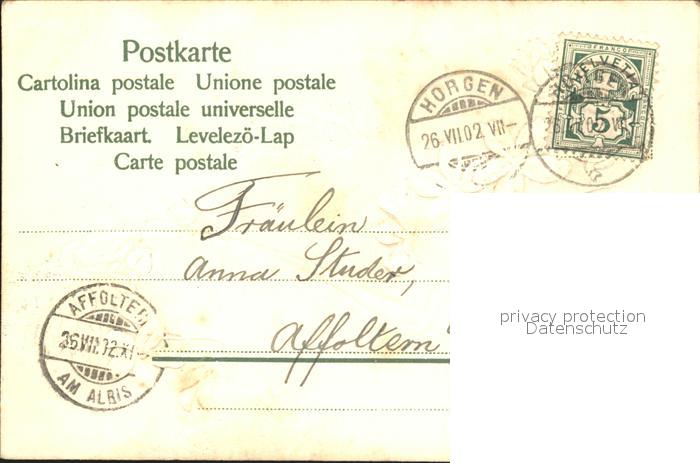 Postkarte
Cartolina postale Unione postale
Union postale universelle
Briefkaart. Levelezö-Lap
Carte postale
HORGEN
26.VII.02.VII-
FRANCO
HELVETIA
5
Fräulein
Anna Studer,
Affoltern
AFFOLTERN
26.VII.02.XI-
AM ALBIS
privacy protection
Datenschutz